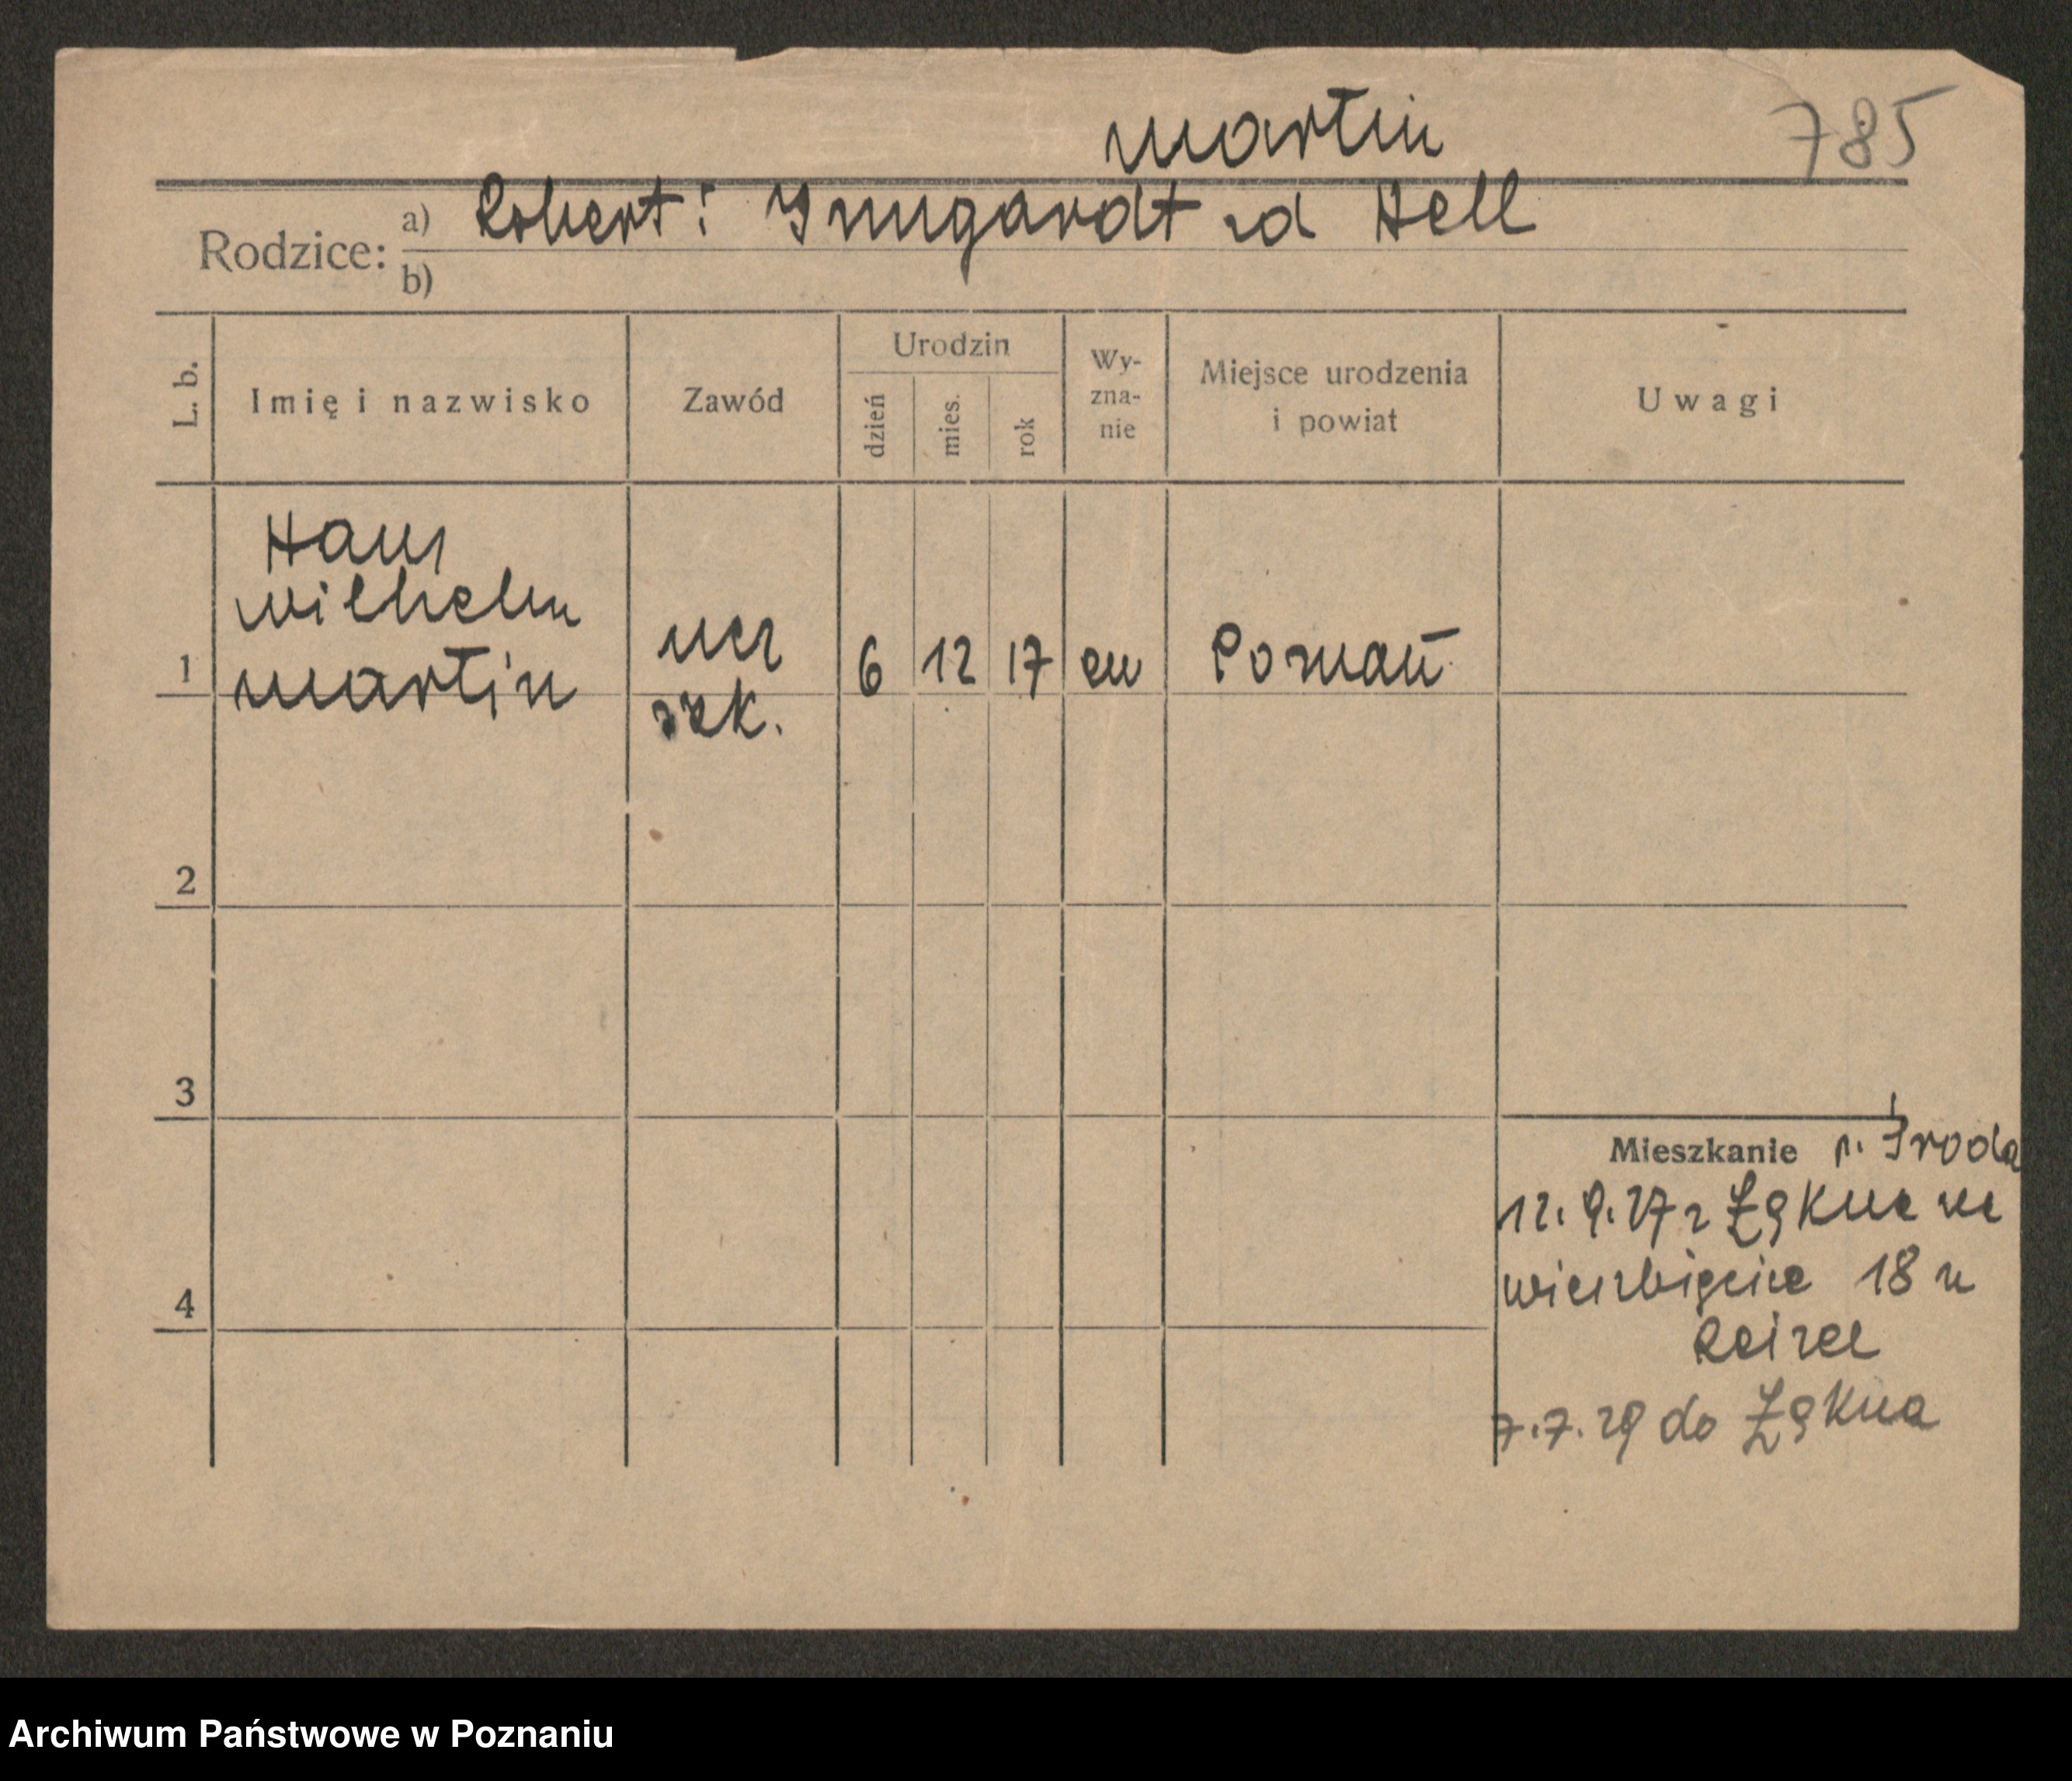 Martin
785
Rodzice: a) Robert i Irmgardt zd Hell
b)
L. b.
Imię i nazwisko
Zawód
Urodzin
dzień
mies.
rok
Wy-
zna-
nie
Miejsce urodzenia
i powiat
Uwagi
Hans
Wilhelm
1 Martin
ucz
szk.
6 12 17 ew Poznań
2
3
4
Mieszkanie p. Środa
12. 9. 27 z Żękna na
Wierzbięcice 18 u
7.7.29 do Żękna
Archiwum Państwowe w Poznaniu